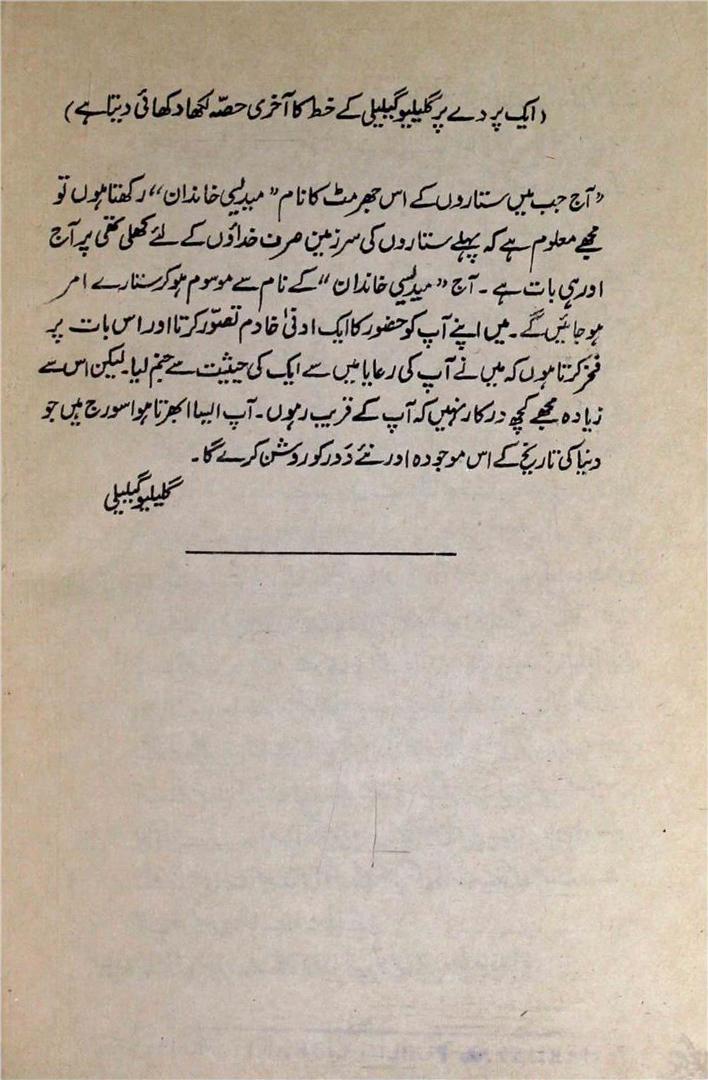 (ایک پردے پر گلیلیو گیلیلی کے خط کا آخری حصّہ لکھا دکھائی دیتا ہے)
"آج جب میں ستاروں کے اس جھرمٹ کا نام "میدیسی خاندان" رکھتا ہوں تو
مجھے معلوم ہے کہ پہلے ستاروں کی سرزمین صرف خداؤں کے لئے کھلی تھی پر آج
اور ہی بات ہے۔ آج "میدیسی خاندان" کے نام سے موسوم ہو کر ستارے امر
ہو جائیں گے۔ میں اپنے آپ کو حضور کا ایک ادنیٰ خادم تصوّر کرتا اور اس بات پر
فخر کرتا ہوں کہ میں نے آپ کی رعایا میں سے ایک کی حیثیت سے جنم لیا۔ لیکن اس سے
زیادہ مجھے کچھ درکار نہیں کہ آپ کے قریب رہوں۔ آپ ایسا ابھرتا ہوا سورج ہیں جو
دنیا کی تاریخ کے اس موجودہ اور نئے دَور کو روشن کرے گا۔
گلیلیو گیلیلی